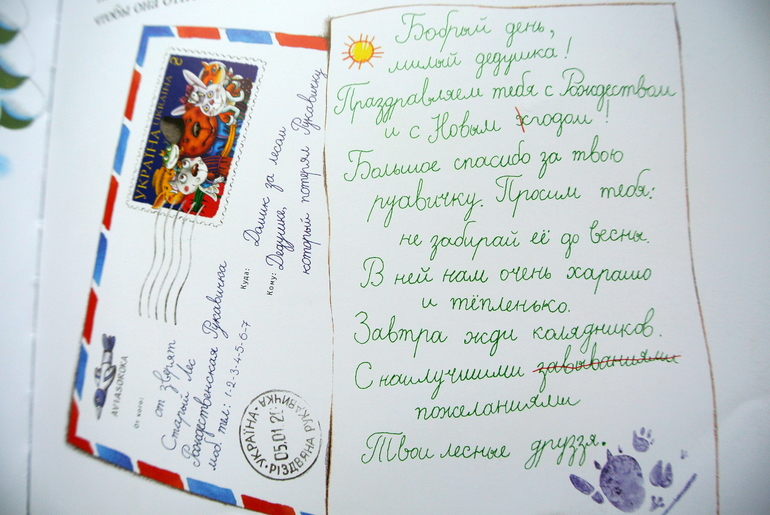 чтобы она
УКРАЇНА UKRAINE
AVIASOROKA
От кого:
от зверят
Старый Лес
Рождественская Рукавичка
моб тел: 1-2-3-4-5-6-7
Куда: Домик за лесом
Кому: Дедушке,
который потерял Рукавичку
УКРАЇНА • РІЗДВЯНА РУКАВИЧКА
05.01.20
Бобрый день,
милый дедушка!
Праздравляем тебя с Рождеством
и с Новым хгодом!
Большое спасибо за твою
руавичку. Просим тебя:
не забирай её до весны.
В ней нам очень харашо
и тёпленько.
Завтра жди колядников.
С наилучшими завываниями
пожеланиями
Твои лесные друззя.